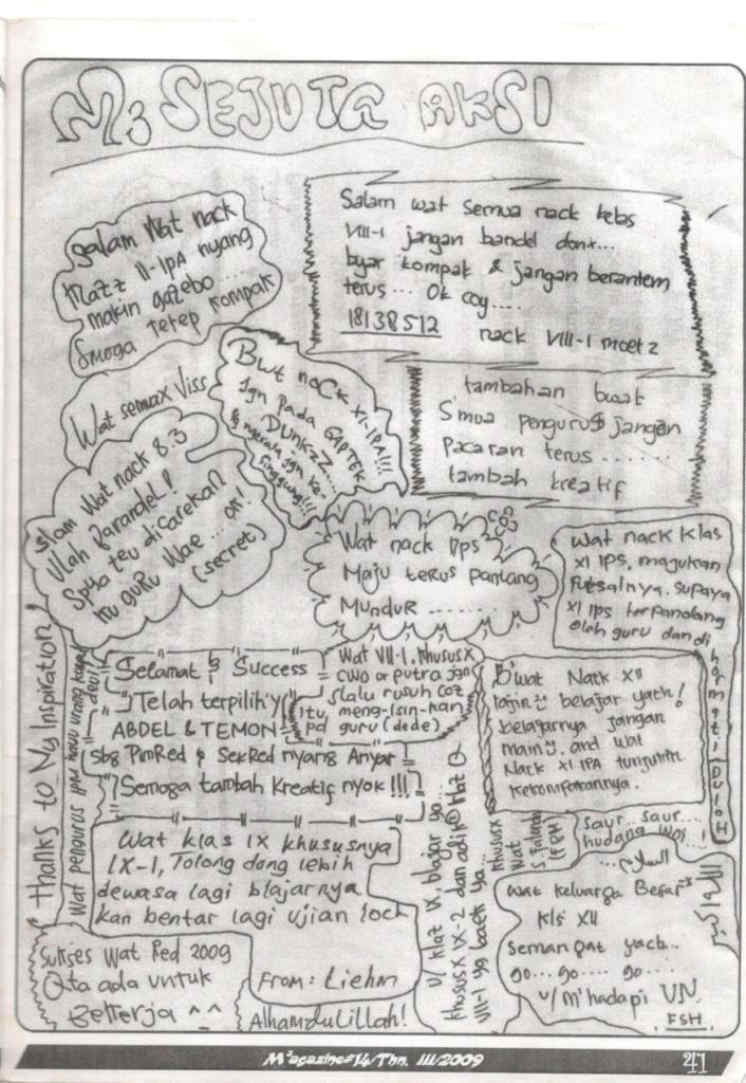 M3 SEJUTA AKSI
Salam Wat nack
Mazz II-IPA nyang
makin gazebo ...
Smoga tetep kompak
Salam wat semua nack kelas
VIII-1 jangan bandel donx...
byar kompak & jangan berantem
terus ... Ok coy....
18138512 nack VIII-1 moetz
Wat semuax Viss
Bwt nack XI-IPA!!!
Jgn pada GAPTEK
DUNKZZ....
singgung!!!
tambahan buat
S'mua pengurus jangan
Pacaran terus .......
tambah kreatif
Slam Wat nack 8.3
Ulah Barandel!
Spya teu dicarekan
Ku guRu Wae ... on!
(secret)
Wat nack Ips
Maju terus pantang
MunduR .......
Wat nack Klas
XI IPS, majukan
Futsalnya. supaya
XI Ips terpandang
Oleh guru dan di
hormati DuloH
Thanks to My Inspiration!
Wat pengurus
Selamat & Success
Telah terpilih'y
ABDEL & TEMON
Sbg PimRed & SekRed nyang Anyar
Semoga tambah Kreatif nyok !!!
Wat VII-1. Khususx
cwo or putra jgn
slalu rusuh coz
itu meng-Isin-kan
pd guru (dede)
B'wat Nack XII
rajin2 belajar yach!
belajarnya jangan
main2. and wat
Nack XI IPA tunjukin
kekompakannya.
Wat klas IX khususnya
IX-1, Tolong dong lebih
dewasa lagi blajarnya
kan bentar lagi ujian loch
From: Liehm
u/ klaz IX, blajar yo...
khususx IX-2 dan adik@ klaz
VII-1 yg baek ya...
Khususx
Wat
Saur... saur...
hudang woi...!
Wat Keluarga Besar
Kls XII
Semangat yach..
go... go.... go...
u/ m'hadapi UN.
FSH
Sukses Wat Red 2009
Qta ada untuk
Bekerja ^_^
Alhamdulillah!
M'agazine#14/Thn. III/2009
41